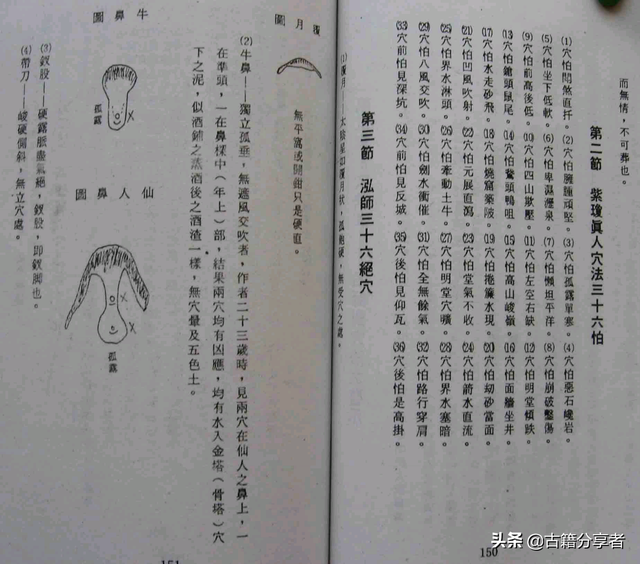 而無情，不可葬也。
第二節 紫瓊眞人穴法三十六怕
(1)穴怕悶煞直扦。 (2)穴怕臃腫頑堅。 (3)穴怕孤露單塞。 (4)穴怕惡石巉岩。
(5)穴怕坐下低軟。 (6)穴怕卑濕溼泉。 (7)穴怕懶坦平洋。 (8)穴怕崩破鑿傷。
(9)穴怕前高後低。 (10)穴怕四山欺壓。 (11)穴怕左空右缺。 (12)穴怕明堂傾跌。
(13)穴怕鎗頭鼠尾。 (14)穴怕鵞頭鴨咀。 (15)穴怕高山峻嶺。 (16)穴怕面牆坐井。
(17)穴怕水走砂飛。 (18)穴怕燒窰築陂。 (19)穴怕捲簾水現。 (20)穴怕刼砂當面。
(21)穴怕凹風吹射。 (22)穴怕元辰直瀉。 (23)穴怕堂氣不收。 (24)穴怕箭水直流。
(25)穴怕界水淋頭。 (26)穴怕牽動土牛。 (27)穴怕明堂穴曠。 (28)穴怕界水塞暗。
(29)穴怕八風交吹。 (30)穴怕劍水衝催。 (31)穴怕全無餘氣。 (32)穴怕路行穿肩。
(33)穴前怕見深坑。 (34)穴前怕見反城。 (35)穴後怕見仰瓦。 (36)穴後怕是高掛。
第三節 泓師三十六絕穴
月狀，孤飽硬，無受穴之處。
150
覆月圖
無平窩或開鉗只是硬直。
(2)牛鼻——獨立孤垂，無遮風交吹者，作者二十三歲時，見兩穴在仙人之鼻上，一
在準頭，一在鼻樑中（年上）部，結果兩穴均有凶應，均有水入金塔（骨塔）穴
下之泥，似酒鋪之蒸酒後之酒渣一樣，無穴暈及五色土。
牛鼻圖
孤露
仙人鼻圖
孤露
(3)釵股——硬露脈盡氣絕，釵股，即釵脚也。
(4)帶刀——峻硬偏斜，無立穴處。
151
头条 @古籍分享者